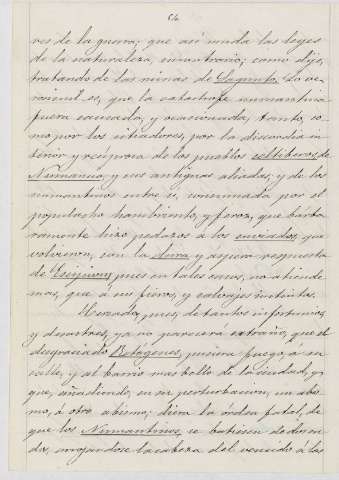 64
res de la guerra; que así muda las leyes
de la naturaleza, encontraño; como dije,
tratando de las ruinas de Sagunto. Lo ve-
rosimil es, que la catastrofe numantina
fuera causada, y ocasionada, tanto, co-
mo por los sitiadores, por la discordia in-
terior y reciproca de los pueblos celtiberos, de
Numancia, y sus antiguas aliadas; y de los
numantinos entre si, consumada por el
populacho hambriento, y feroz, que bárba-
ramente hizo pedazos á los enviados, que
volvieron, con la dura y aspera respuesta
de Escipion; pues en tales casos, no atiende
mas, que á sus fieros, y salvajes instintos.
Cercado, pues, de tantos infortunios,
y desastres, ya no parecerá extraño, que el
desgraciado Retógenes, pusiera fuego á su
calle, y al barrio mas bello de la ciudad, y
que, añadiendo, en su perturbacion, un abis-
mo, á otro abismo; diera la órden fatal, de
que los Numantinos, se batiesen de dos en
dos, arrojandose la cabeza del vencido á las